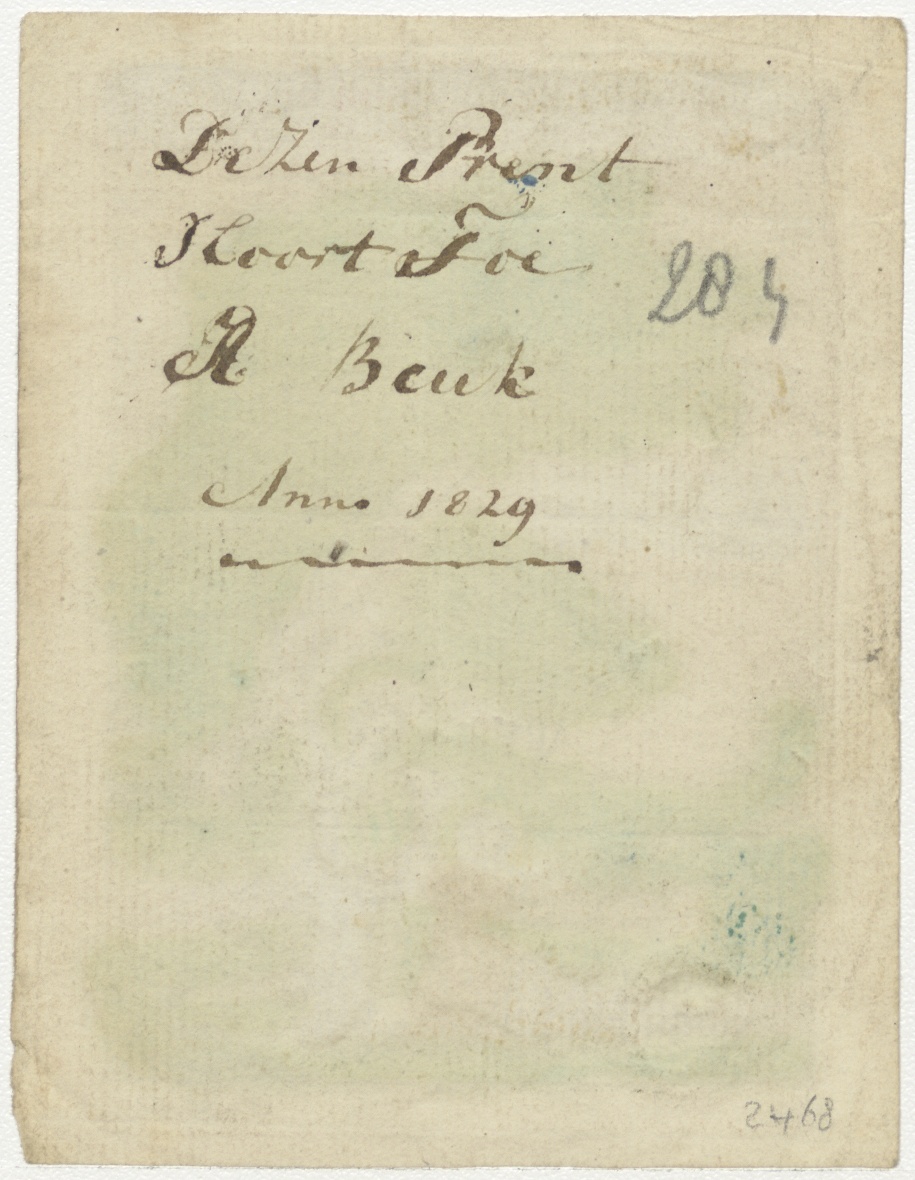 Dezen Prent
Hoort Toe
A Beuk
204
Anno 1829
2468